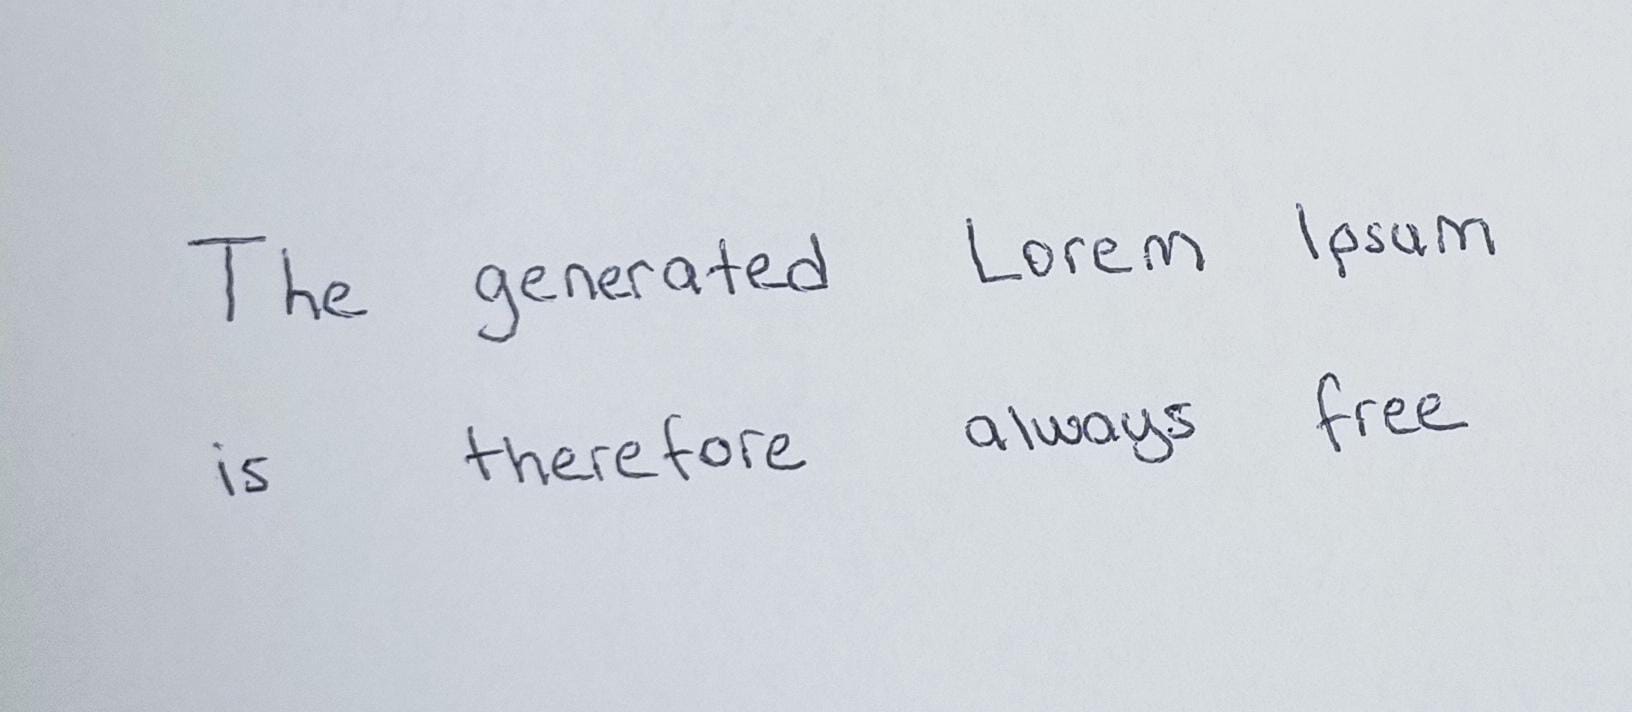 The generated Lorem Ipsum
is therefore always free